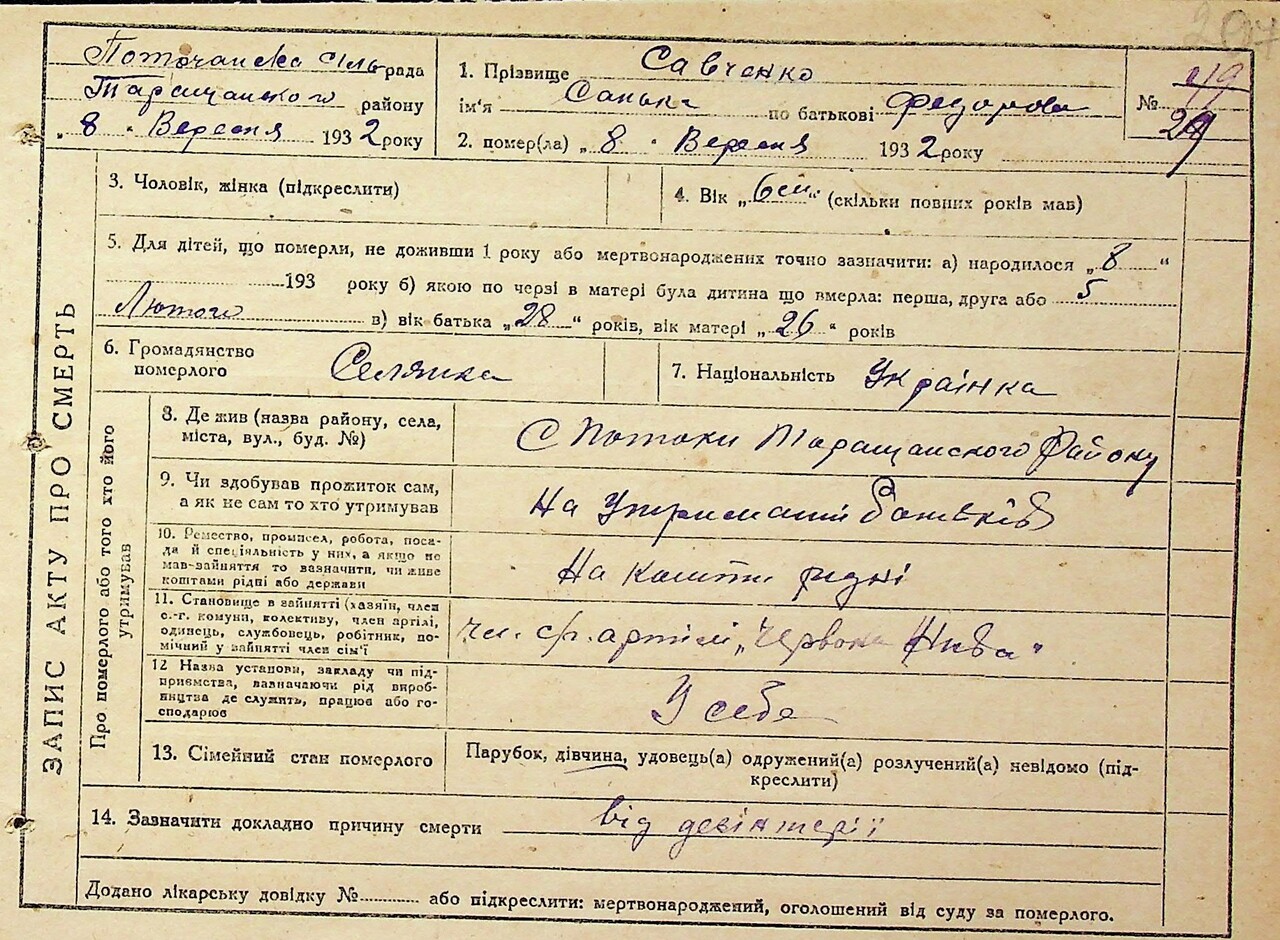 Поточанска сіль рада
Таращанского району
„ 8 " Вересня 1932 року
1. Прізвище Савченко
ім'я Санька по батькові Федорова
2. помер(ла) „ 8 " Вересня 1932 року
№ 29
3. Чоловік, жінка (підкреслити)
4. Вік „6 м" (скільки повних років мав)
5. Для дітей, що померли, не доживши 1 року або мертвонароджених точно зазначити: а) народилося „ 8 "
193 року б) якою по черзі в матері була дитина що вмерла: перша, друга або 5
Лютого в) вік батька „28" років, вік матері „26" років
6. Громадянство
померлого
Селянка
7. Національність Українка
ЗАПИС АКТУ ПРО СМЕРТЬ
Про померлого або того хто його
утримував
8. Де жив (назва району, села,
міста, вул., буд. №)
С Потоки Таращанского Району
9. Чи здобував прожиток сам,
а як не сам то хто утримував
На Утриманні батьків
10. Ремество, промисел, робота, поса-
да й спеціяльність у них, а якщо не
мав-зайняття то вазначити, чи живе
коштами рідні або держави
На кошти рідні
11. Становище в зайнятті (хазяїн, член
с.-г. комуни, колективу, член артілі,
одинець, службовець, робітник, по-
мічний у вайнятті член сім'ї
чл. с/г. артілі „Червона Нива"
12 Назва установи, закладу чи під-
приємства, вазначаючи рід вироб-
ництва де служить, працює або го-
сподарює
У себе
13. Сімейний стан померлого
Парубок, дівчина, удовець(а) одружений(а) розлучений(а) невідомо (під-
креслити)
14. Зазначити докладно причину смерти від дезінтерії
Додано лікарську довідку № або підкреслити: мертвонароджений, оголошений від суду за померлого.